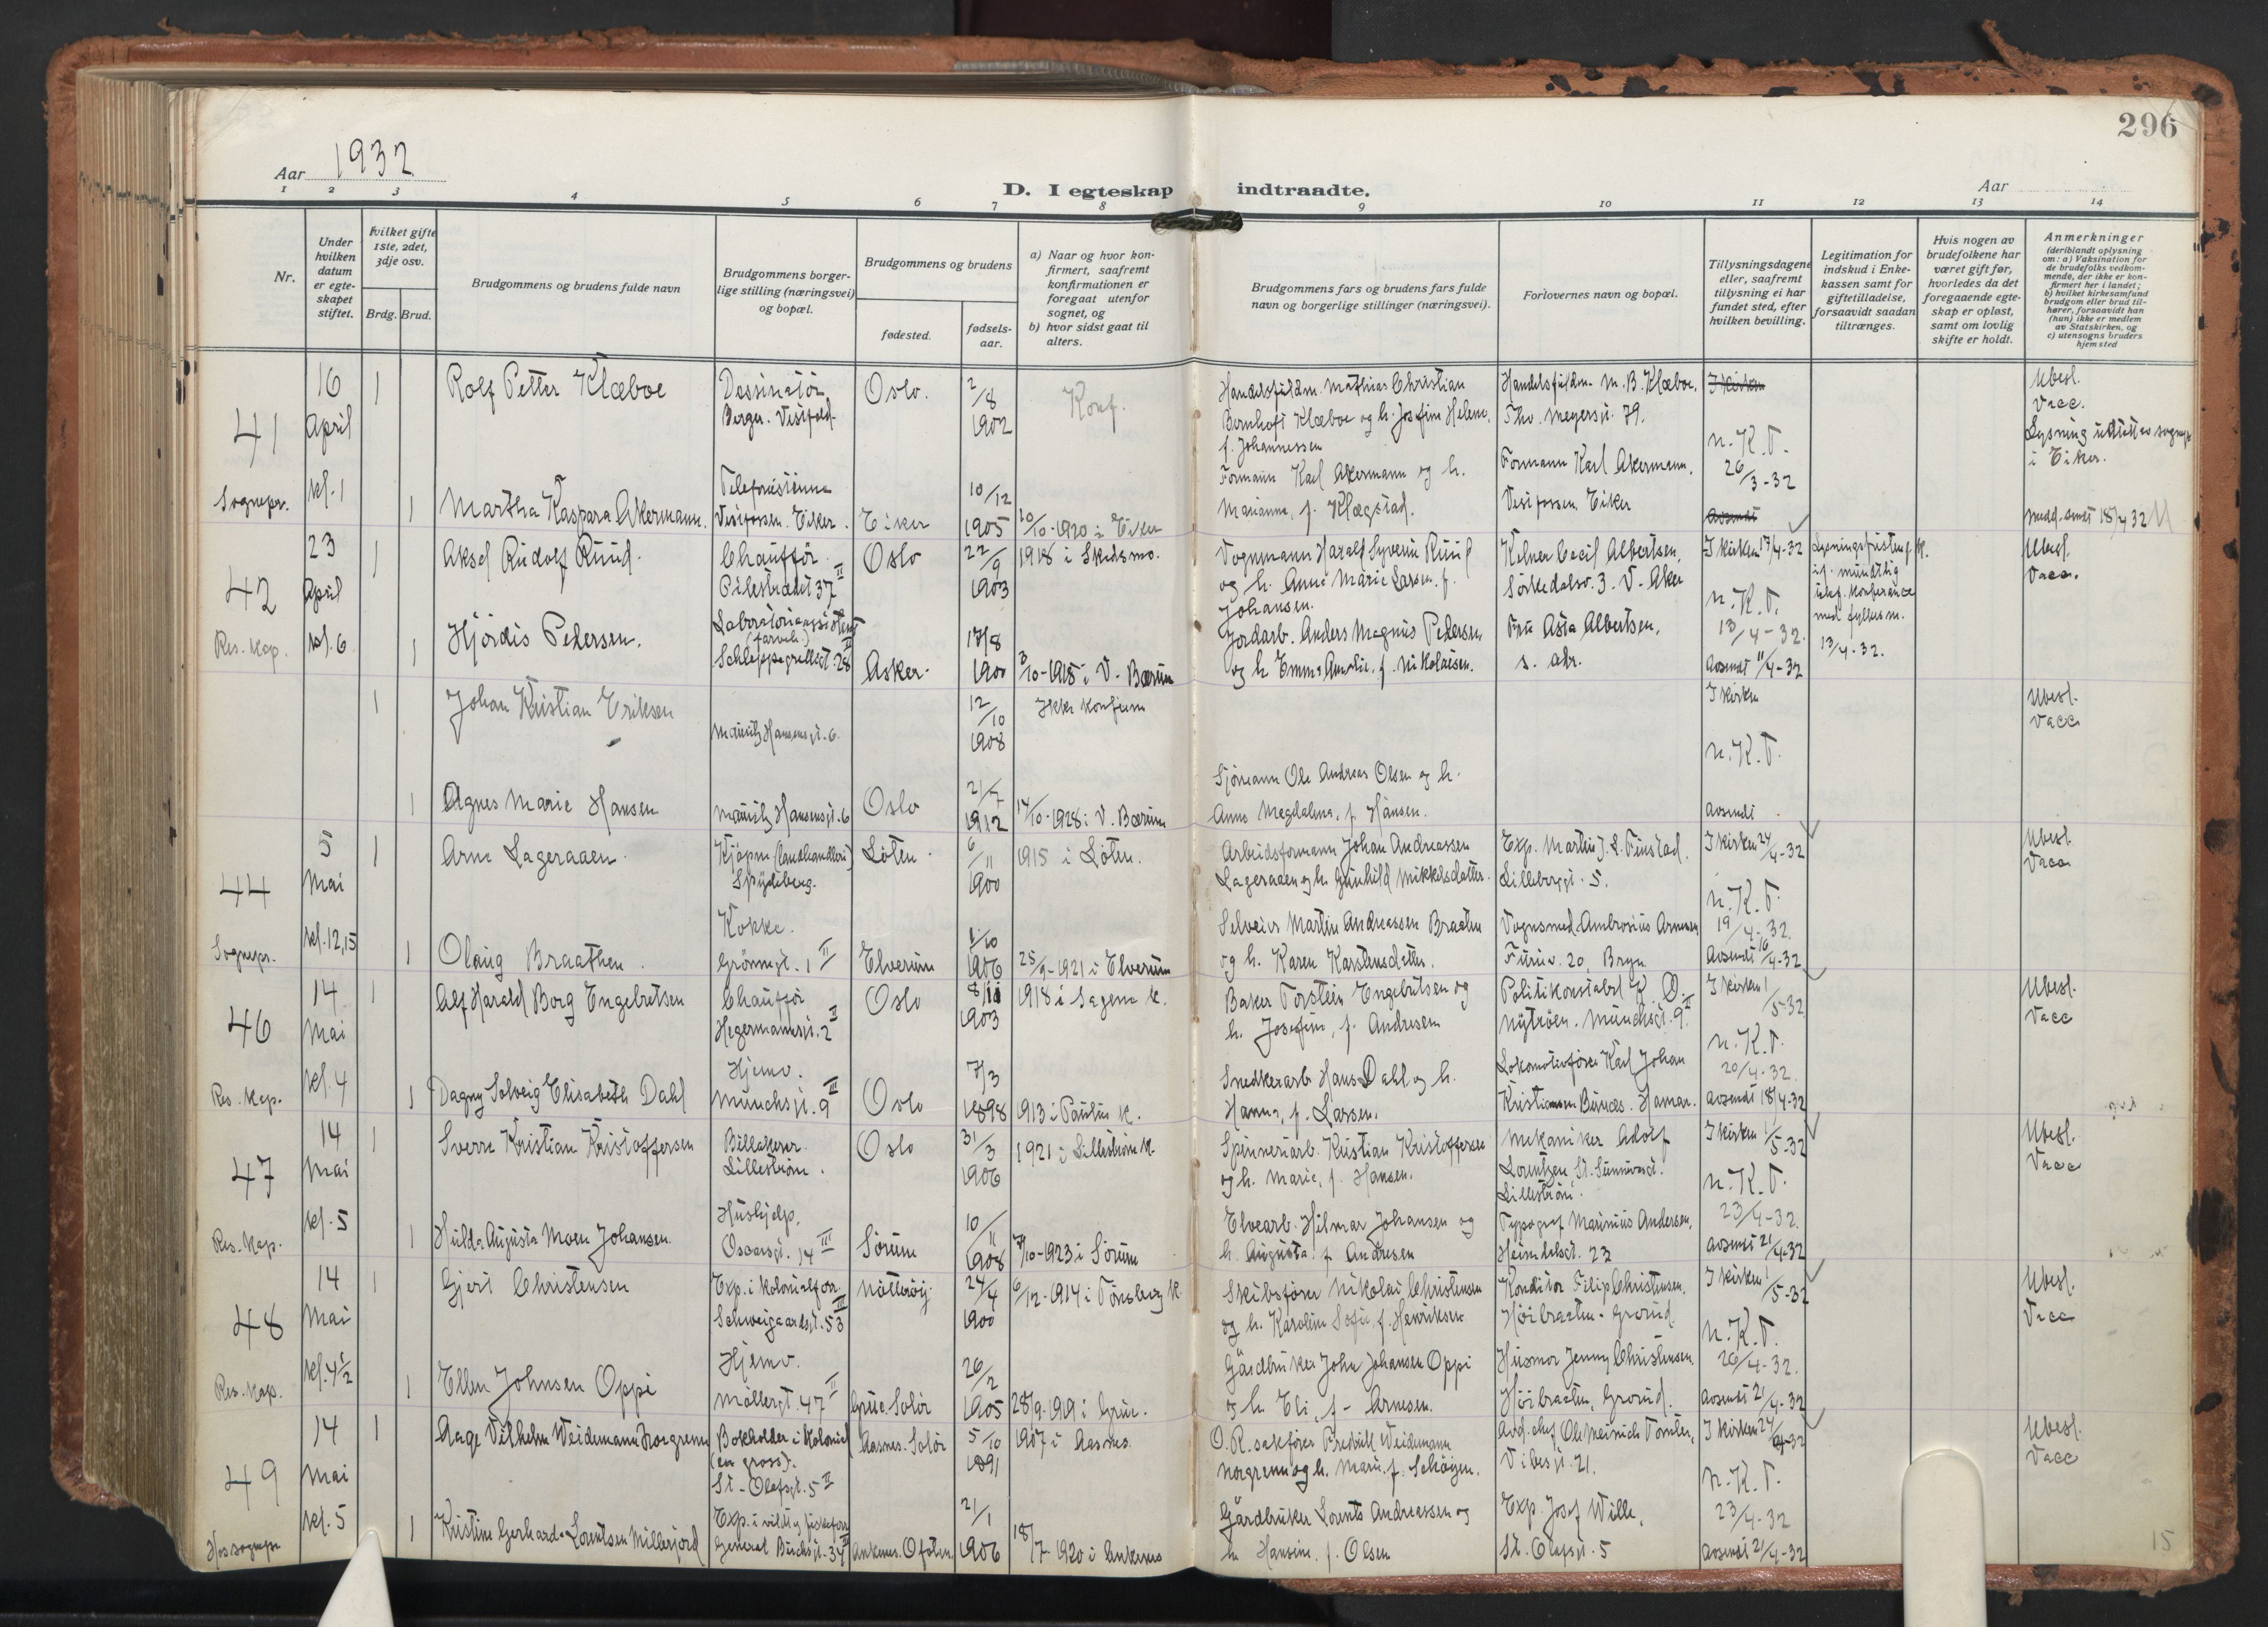 296
Aar 1932
D. I egteskap indtraadte.
Aar
1 2 3 4 5 6 7 8 9 10 11 12 13 14
Nr.
Under hvilken datum er egteskapet stiftet.
Hvilket gifte 1ste, 2det, 3dje osv.
Brdg. Brud.
Brudgommens og brudens fulde navn
Brudgommens borgerlige stilling (næringsvei) og bopæl.
Brudgommens og brudens
fødested.
fødselsaar.
a) Naar og hvor konfirmert, saafremt konfirmationen er foregaat utenfor sognet, og
b) hvor sidst gaat til alters.
Brudgommens fars og brudens fars fulde navn og borgerlige stillinger (næringsvei).
Forlovernes navn og bopæl.
Tillysningsdagene eller, saafremt tillysning ei har fundet sted, efter hvilken bevilling.
Legitimation for indskud i Enkekassen samt for giftetilladelse, forsaavidt saadan tiltrænges.
Hvis nogen av brudefolkene har været gift før, hvorledes da det foregaaende egteskap er opløst, samt om lovlig skifte er holdt.
Anmerkninger
(deriblandt oplysning om: a) Vaksination for de brudefolks vedkommende, der ikke er konfirmert her i landet; b) hvilket kirkesamfund brudgom eller brud tilhører, forsaavidt han (hun) ikke er medlem av Statskirken, og c) utensogns bruders hjemsted
41 Sognepr.
16 April kl. 1
1 Rolf Petter Klæboe
Dessinatør
Berger. Vestfold.
Oslo.
2/8 1902
Konf.
Handelsfuldm. Mathias Christian
Bernhoft Klæboe og h. Josefine Helene,
f. Johannessen
Handelsfuldm. M. B. Klæboe.
Thv. Meyersgt. 79.
I kirken
n. K. T.
26/3-32
Ubesl.
Vacc.
i Eiker.
1 Martha Kaspara Akermann.
Telefonistinne
Vestfossen. Eiker.
Eiker
10/12 1905
10/10-1920 i Eiker
Formann Karl Akermann og h.
Marianne, f. Klægstad.
Formann Karl Akermann.
Vestfossen Eiker
Avsendt
Medd. sendt 18/4 32
42 Res. kap.
23 April kl. 6
1 Aksel Rudolf Ruud.
Chauffør.
Pilestrædet 37 II
Oslo
22/9 1903
1918 i Skedsmo.
Vognmann Harald Syverin Ruud
og h. Anne Marie Larsen, f.
Johansen.
Kelner Cecil Albertsen,
Sørkedalsv. 3. V. Aker
I kirken 17/4-32
n. K. T.
13/4-32.
Avsendt 11/4-32
mundtlig
konferance
med fylkesm.
13/4-32.
Ubesl.
Vacc.
1 Hjørdis Pedersen.
Laboratorieassistent
Schleppegrellsgt. 28
Asker.
17/8 1900
3/10-1915 i V. Bærum
Jordarb. Anders Magnus Pedersen
og h. Emma Amalie, f. Nikolaisen.
Fru Asta Albertsen,
s. adr.
1 Johan Kristian Eriksen
Mauritz Hansensgt. 6.
12/10 1908
Ikke konfirm
I kirken
n. K. T.
Ubesl.
Vacc
1 Agnes Marie Hansen
Mauritz Hansensgt. 6
Oslo
21/7 1912
14/10-1928 i V. Bærum
Sjømann Ole Andreas Olsen og h.
Anne Magdalena, f. Hansen.
Avsendt
44 Sognepr.
5 Mai kl. 12,15
1 Arne Lageraaen.
Kjøpm (landhandleri)
Spydeberg.
Løten.
6/11 1900
1915 i Løten.
Arbeidsformann Johan Andreassen
Lageraaen og h. Gunhild Mikkelsdatter.
Exp. Martin J. L. Finstad.
Lilleborggt. 5.
I kirken 24/4-32
n. K. T.
19/4-32.
Avsendt 16/4-32
Ubesl.
Vacc
1 Olaug Braathen.
Kokke.
Grønnegt. 1 II
Elverum
1/10 1906
25/9-1921 i Elverum
Selveier Martin Andreassen Braaten
og h. Karen Karstensdatter.
Vognsmed Ambrosius Arnesen,
Furuv. 20, Bryn
46 Res. kap.
14 Mai kl. 4
1 Alf Harald Borg Engebretsen
Chauffør
Hegermannsgt. 2 II
Oslo
8/11 1903
1918 i Sagene k.
Baker Torstein Engebretsen og
h. Josefine, f. Andresen
Politikonstabel K. O.
Nytrøen. Munchsgt. 9 II
I kirken 1/5-32
n. K. T.
20/4-32.
Avsendt 18/4-32
Ubesl.
Vacc
1 Dagny Solveig Elisabeth Dahl
Hjemv.
Munchsgt. 9 III
Oslo
7/3 1898
1913 i Paulus k.
Snedkerarb Hans Dahl og h.
Hanna, f. Larsen.
Lokomotivfører Karl Johan
Kristiansen Hamar.
47 Res. kap.
14 Mai kl. 5
1 Sverre Kristian Kristoffersen
Billakerer.
Lillestrøm.
Oslo
31/3 1906
1921 i Lillestrøm k.
Spinneriarb. Kristian Kristoffersen
og h. Marie, f. Hansen.
Mekaniker Adolf
Lorentzen, St. Sunnivasgt.
Lillestrøm.
I kirken 1/5-32
n. K. T.
23/4-32.
Avsendt 21/4-32
Ubesl.
Vacc
1 Hulda Augusta Moen Johansen.
Hushjelp.
Oscarsgt. 14 III
Sørum
10/11 1908
7/10-1923 i Sørum
Elvearb. Hilmar Johansen og
h. Augusta f. Andresen
Typograf Marinius Andersen,
Heimdalsgt. 22
48 Res. kap.
14 Mai kl. 4 1/2
1 Gjert Christensen
Exp. i kolonialforr.
Schweigaardsgt. 53 III
Nøtterøy.
24/4 1900
6/12-1914 i Tønsberg k.
Skibsfører Nikolai Christensen
og h. Karoline Sofie, f. Henriksen
Konditor Filip Christensen.
Høibraaten. Grorud.
I kirken 1/5-32
n. K. T.
26/4-32.
Avsendt 21/4-32
Ubesl.
Vacc
1 Ellen Johnsen Oppi
Hjemv.
Møllergt. 47 II
Grue. Solør
26/2 1905
28/9-1919 i Grue.
Gårdbruker John Johansen Oppi
og h. Eli, f. Arnesen.
Husmor Jenny Christensen.
Høibraaten, Grorud.
49 Hos sognepr.
14 Mai kl. 5
1 Aage Vilhelm Weidemann Norgrenn
Bokholder i kolonial
(en gross).
St. Olafsgt. 5 II
Aasnes. Solør
5/10 1891
1907 i Aasnes.
O. R. sakfører Fredrik Weidemann
Norgrenn og h. Marie, f. Schøyen.
Avd. chef Ole Meinich Tomter,
Vibesgt. 21.
I kirken 24/4-32
n. K. T.
23/4-32
Avsendt 21/4-32
Ubesl.
Vacc
1 Kristine Gerharda Lorentsen Millerjord
Exp. i vilt og fiskeforr.
General Birchsgt. 34 II
Ankenes. Ofoten.
21/1 1906
18/7-1920 i Ankenes
Gårdbruker Lorents Andreassen og
h. Hansine, f. Olsen
Exp. Josef Wille,
St. Olafsgt. 5
15